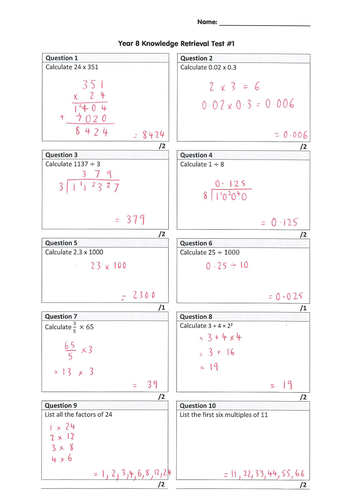 Name:
Year 8 Knowledge Retrieval Test #1
Question 1
Calculate 24 x 351
351
x 24
1404
+ 7020
8424
= 8424
/2
Question 2
Calculate 0.02 x 0.3
2 x 3 = 6
0.02 x 0.3 = 0.006
= 0.006
/2
Question 3
Calculate 1137 ÷ 3
379
3
= 379
/2
Question 4
Calculate 1 ÷ 8
0.125
8
= 0.125
/2
Question 5
Calculate 2.3 x 1000
23 x 100
= 2300
/1
Question 6
Calculate 25 ÷ 1000
0.25 ÷ 10
= 0.025
/1
Question 7
Calculate 3/5 × 65
65/5 x 3
= 13 x 3
= 39
/2
Question 8
Calculate 3 + 4 × 2²
= 3 + 4 x 4
= 3 + 16
= 19
= 19
/2
Question 9
List all the factors of 24
1 x 24
2 x 12
3 x 8
4 x 6
= 1, 2, 3, 4, 6, 8, 12, 24
/2
Question 10
List the first six multiples of 11
= 11, 22, 33, 44, 55, 66
/2